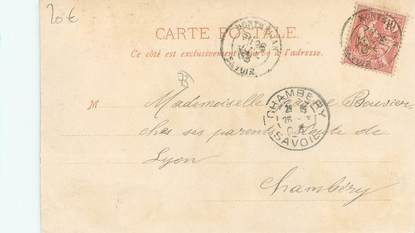 20 €
CARTE POSTALE
Ce côté est exclusivement réservé à l'adresse.
SAVOIE
10
CHAMBERY
SAVOIE
M Mademoiselle Bouvier
chez ses parents Route de
Lyon
Chambéry